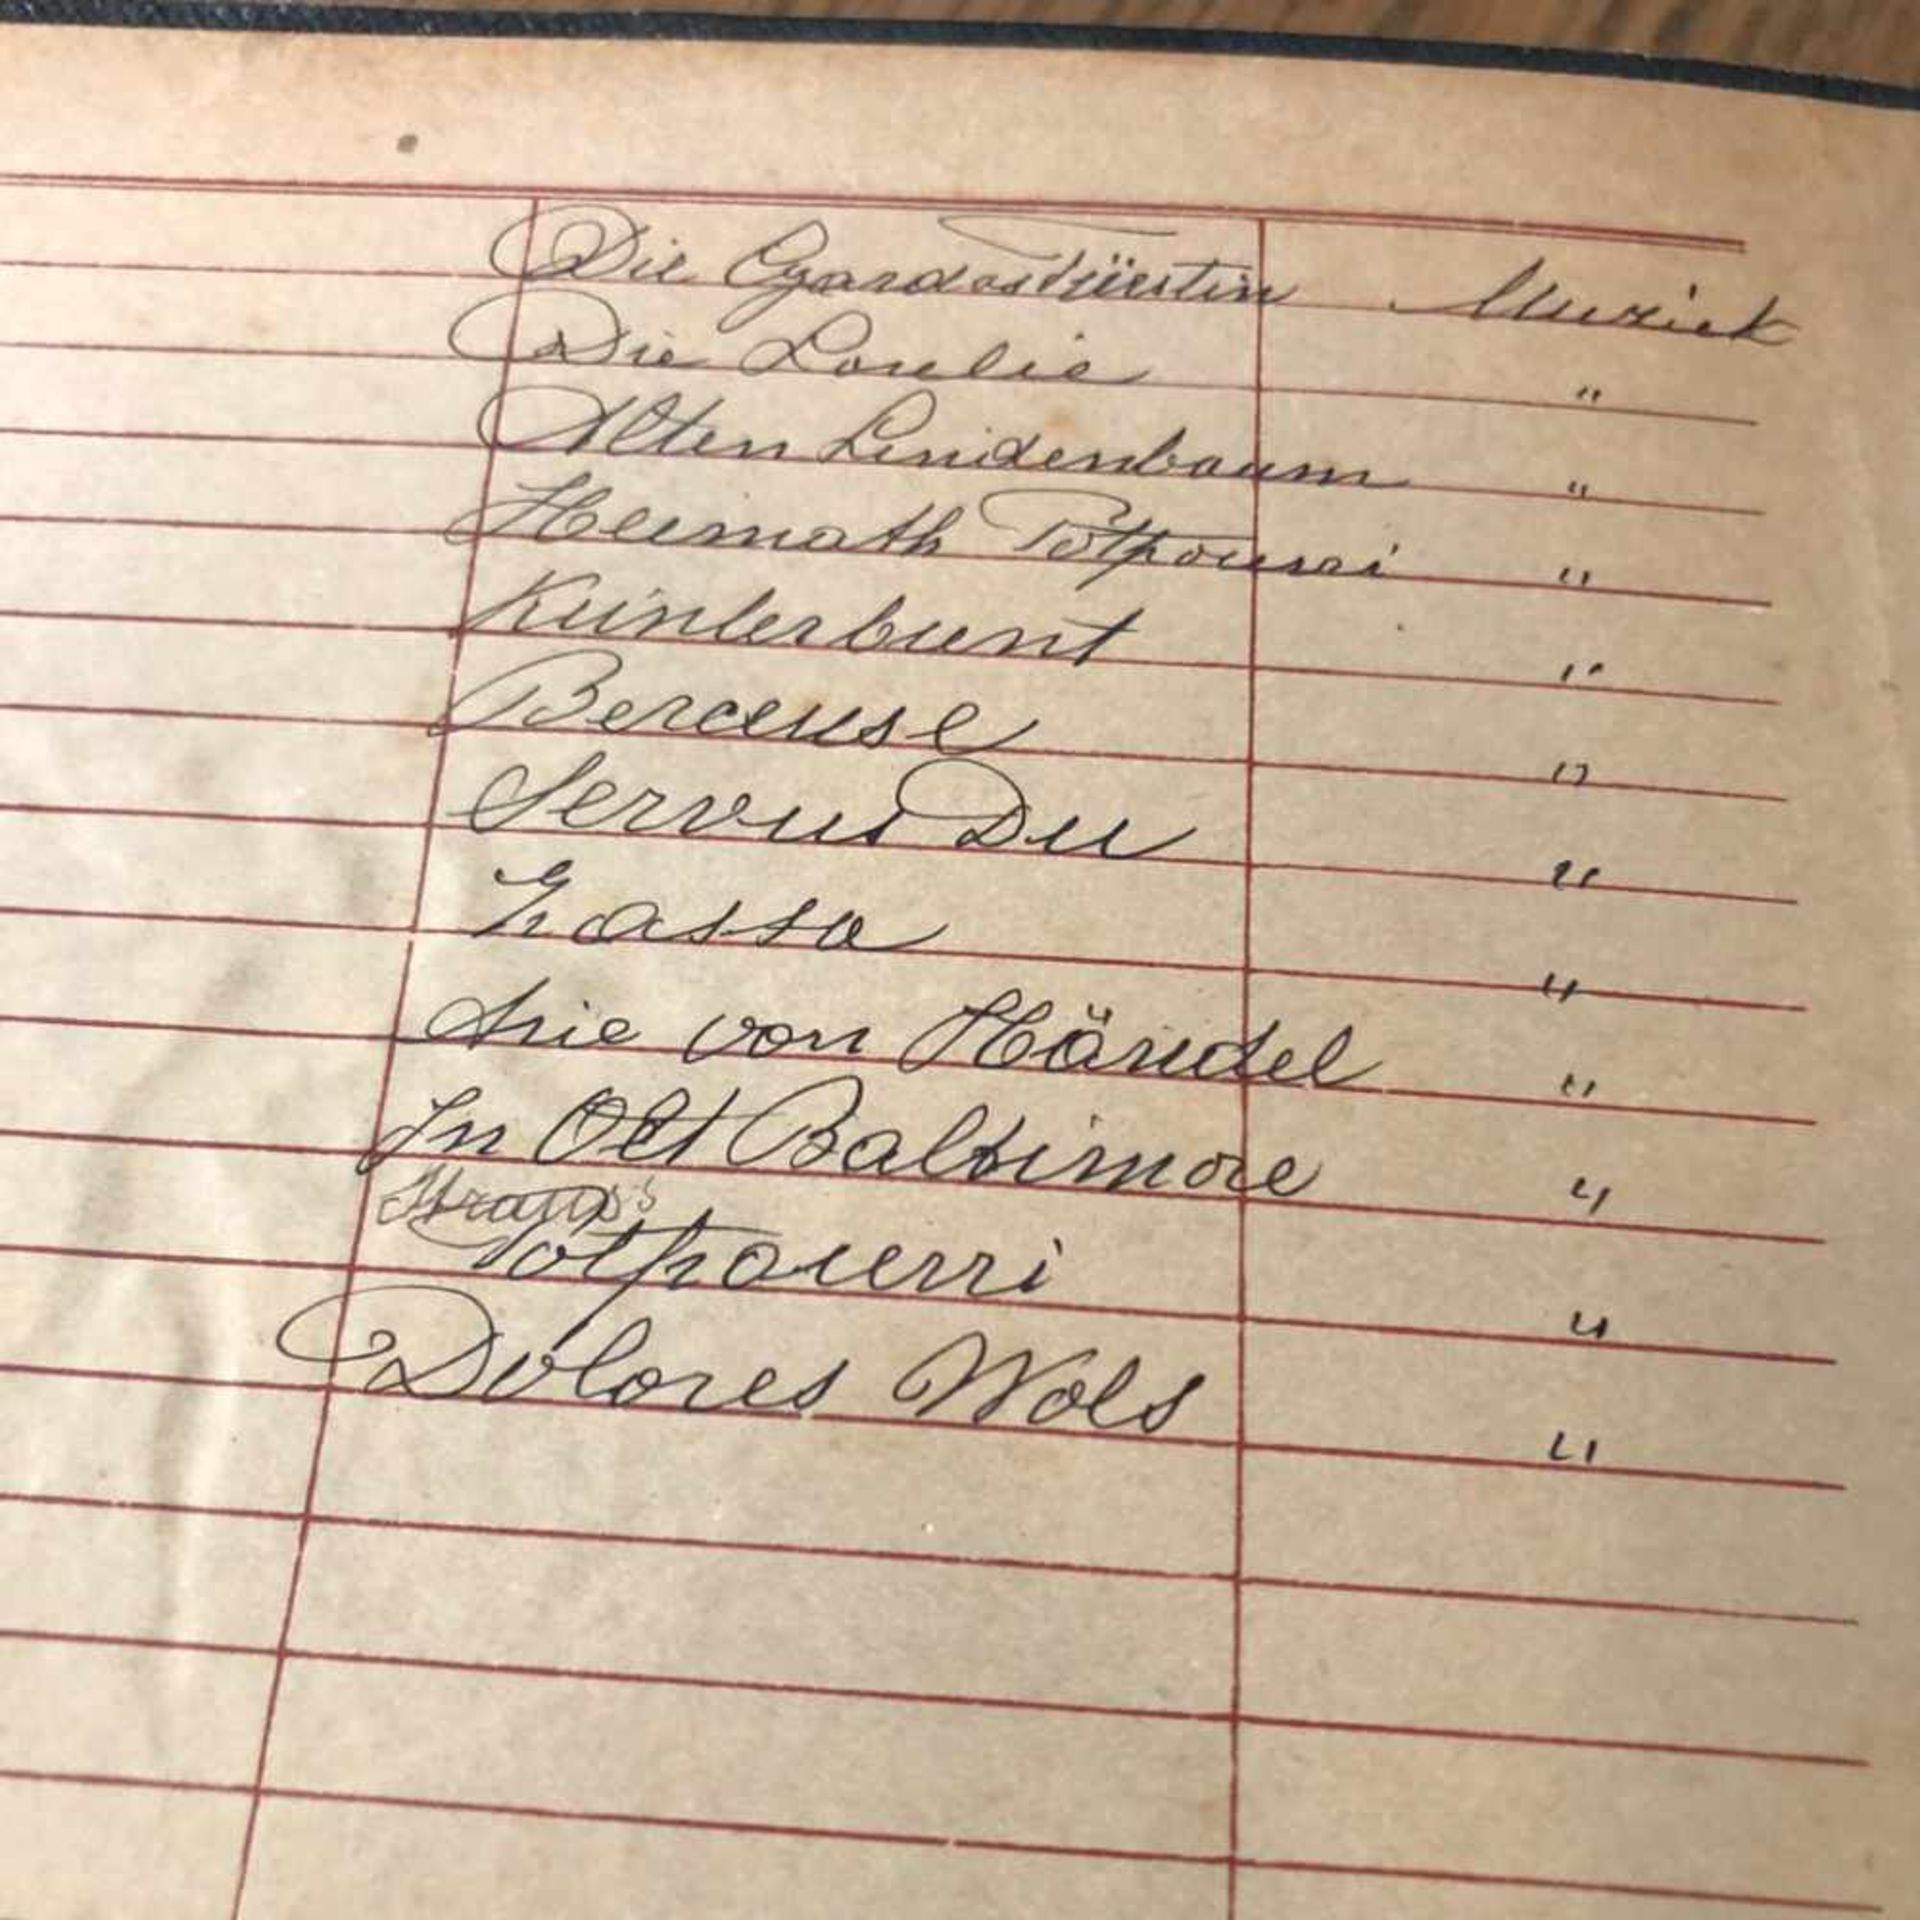 Die Czardasfürstin Muziek
Die Lorelie "
Alten Lindenbaum "
Heimath Potpourri "
Kunterbunt "
Berceuse "
Servus Du "
"
Arie von Händel "
In Old Baltimore "
Strauss
Potpourri "
Dolores Wols "